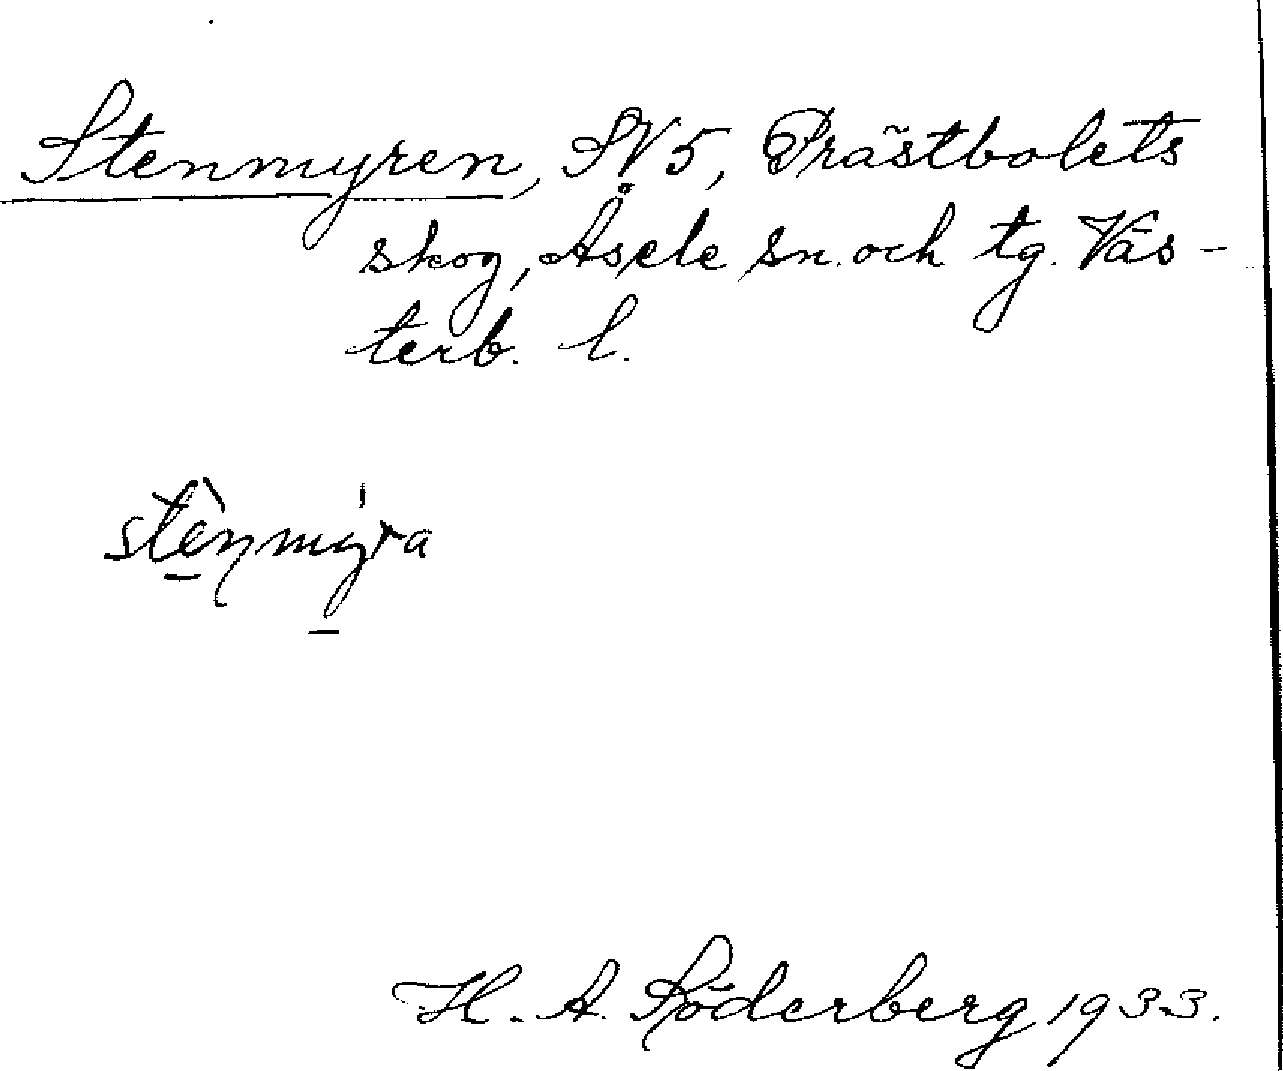 Stenmyren, SV 5, Prästbolets
skog, Åsele sn. och tg. Väs-
terb. l.
stènmýra
H. A. Söderberg 1933.